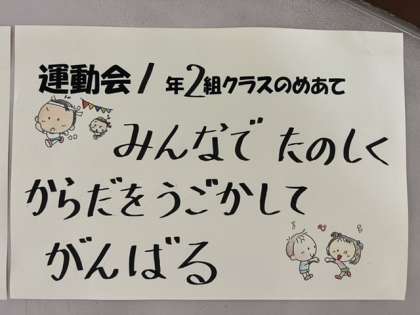 運動会1年2組クラスのめあて
みんなで たのしく
からだを うごかして
がんばる